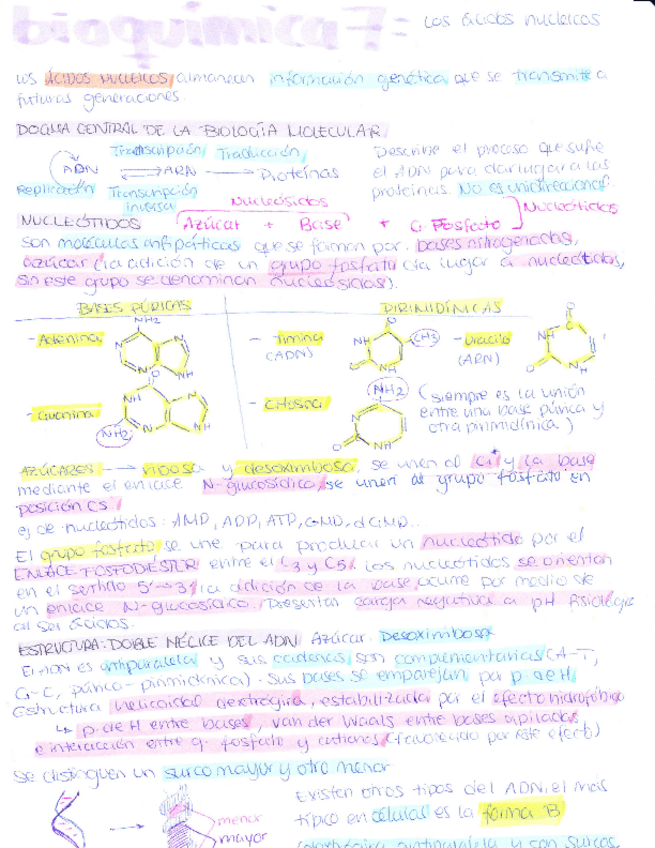 bioquímica 7: Los ácidos nucleicos
Los ÁCIDOS NUCLEICOS, almanecen información genética que se transmite a
futuras generaciones.
DOGMA CENTRAL DE LA BIOLOGÍA MOLECULAR
Transcripción Traducción
ADN ARN Proteínas
Replicación Transcripción
inversa
Describe el proceso que sufre
el ADN para dar lugar a las
proteínas. No es unidireccional.
Nucleósidos
Nucleótidos
NUCLEÓTIDOS Azúcar + Base + G. Fosfato
Son moléculas anfipáticas que se forman por: bases nitrogenadas,
azúcar (la adición de un grupo fosfato da lugar a nucleótidos,
sin este grupo se denominan nucleósidos).
BASES PÚRICAS
PIRIMIDÍNICAS
- Adenina
NH2
N
N
N
NH
- Guanina
O
NH
N
N
NH
NH2
- Timina
(ADN)
O
NH
CH3
O
NH
- Uracilo
(ARN)
O
NH
O
NH
- Citosina
NH2
N
O
NH
(siempre es la unión
entre una base púrica y
otra pirimidínica)
AZÚCARES → ribosa y desoxirribosa, se unen al C1' y la base
mediante el enlace N-glucosídico, se unen al grupo fosfato en
posición C5'
ej de nucleótidos: AMP, ADP, ATP, GMP, dGMP..
El grupo fosfato se une para producir un nucleótido por el
ENLACE FOSFODIÉSTER entre el C3 y C5. Los nucleótidos se orientan
en el sentido 5'→3', la adición de la base ocurre por medio de
un enlace N-glucosídico. Presentan carga negativa a pH fisiológico
al ser ácidos.
ESTRUCTURA: DOBLE HÉLICE DEL ADN Azúcar: Desoxirribosa
El ADN es antiparalela y sus cadenas son complementarias (A-T,
G-C, púrica-pirimidínica). Sus bases se emparejan por p. de H.
Estructura helicoidal dextrógira, estabilizada por el efecto hidrofóbico
↳ p. de H entre bases, van der Waals entre bases apiladas
e interacción entre g. fosfato y cationes (favorecido por este efecto)
Se distinguen un surco mayor y otro menor
menor
mayor
Existen otros tipos del ADN, el más
típico en células es la forma B
antiparalela y con surcos